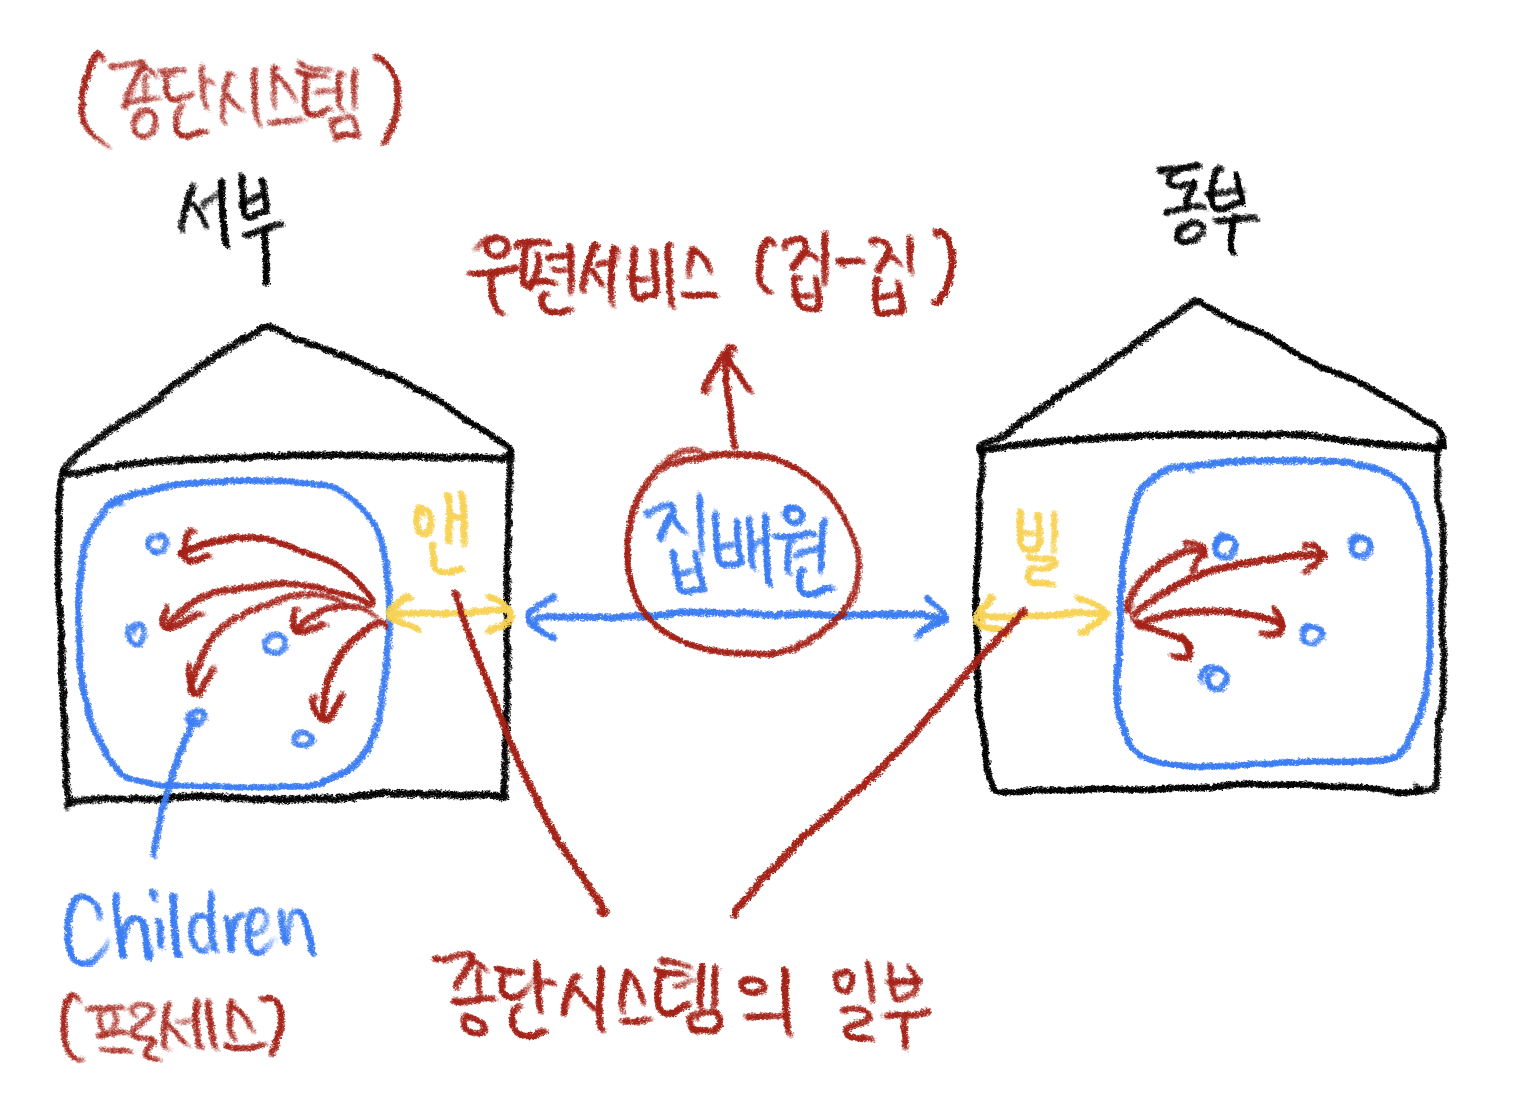 (종단시스템)
서부
동부
우편서비스 (집-집)
앤
집배원
빌
Children
(프로세스)
종단시스템의 일부